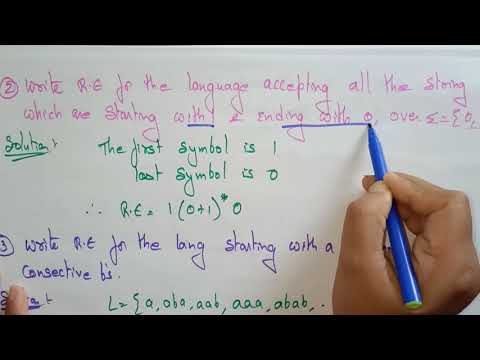 ② Write R.E for the language accepting all the string
which are starting with 1 & ending with 0, over Σ={0,
Solution:
The first symbol is 1
last symbol is 0
∴ R.E = 1(0+1)* 0
③ Write R.E for the lang starting with a
consective b's.
L={a, aba, aab, aaa, abab, .